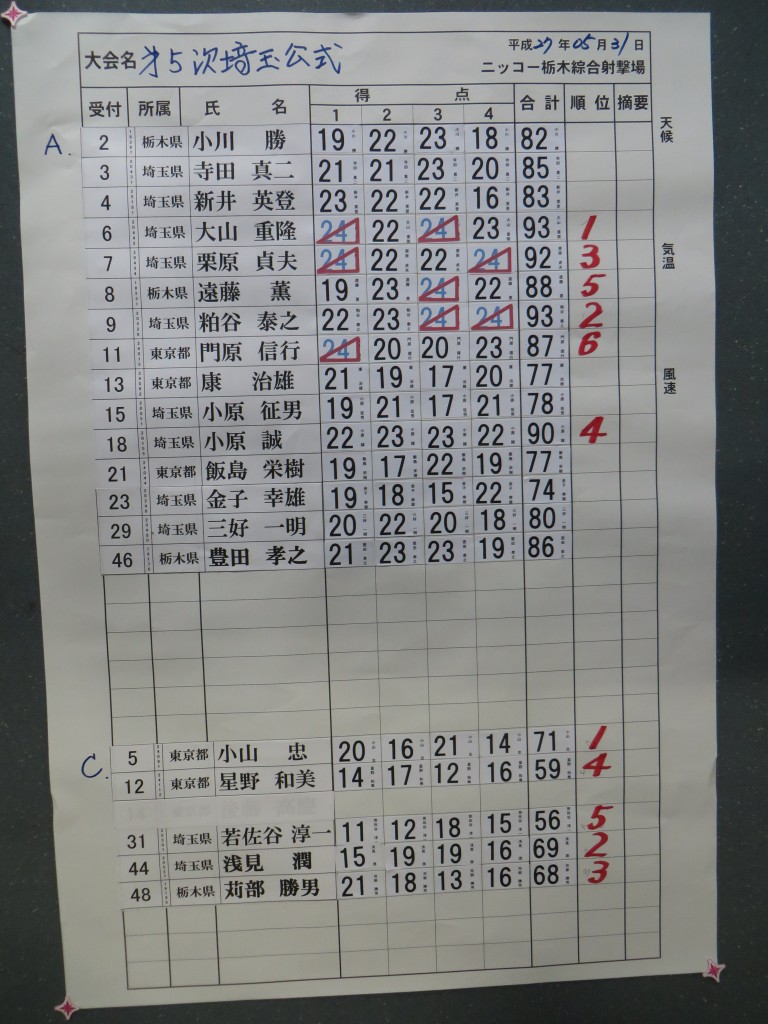 大会名 才5次埼玉公式 平成27年05月31日
ニッコー栃木綜合射撃場
受付 所属 氏 名 得 点 合計 順位 摘要
1 2 3 4
天候
気温
風速
A.
2 栃木県 小川 勝 19 22 23 18 82
3 埼玉県 寺田 真二 21 21 23 20 85
4 埼玉県 新井 英登 23 22 22 16 83
6 埼玉県 大山 重隆 24 22 24 23 93 1
7 埼玉県 栗原 貞夫 24 22 22 24 92 3
8 栃木県 遠藤 薫 19 23 24 22 88 5
9 埼玉県 粕谷 泰之 22 23 24 24 93 2
11 東京都 門原 信行 24 20 20 23 87 6
13 東京都 康 治雄 21 19 17 20 77
15 埼玉県 小原 征男 19 21 17 21 78
18 埼玉県 小原 誠 22 23 23 22 90 4
21 東京都 飯島 栄樹 19 17 22 19 77
23 埼玉県 金子 幸雄 19 18 15 22 74
29 埼玉県 三好 一明 20 22 20 18 80
46 栃木県 豊田 孝之 21 23 23 19 86
C.
5 東京都 小山 忠 20 16 21 14 71 1
12 東京都 星野 和美 14 17 12 16 59 4
31 埼玉県 若佐谷 淳一 11 12 18 15 56 5
44 埼玉県 浅見 潤 15 19 19 16 69 2
48 栃木県 苅部 勝男 21 18 13 16 68 3